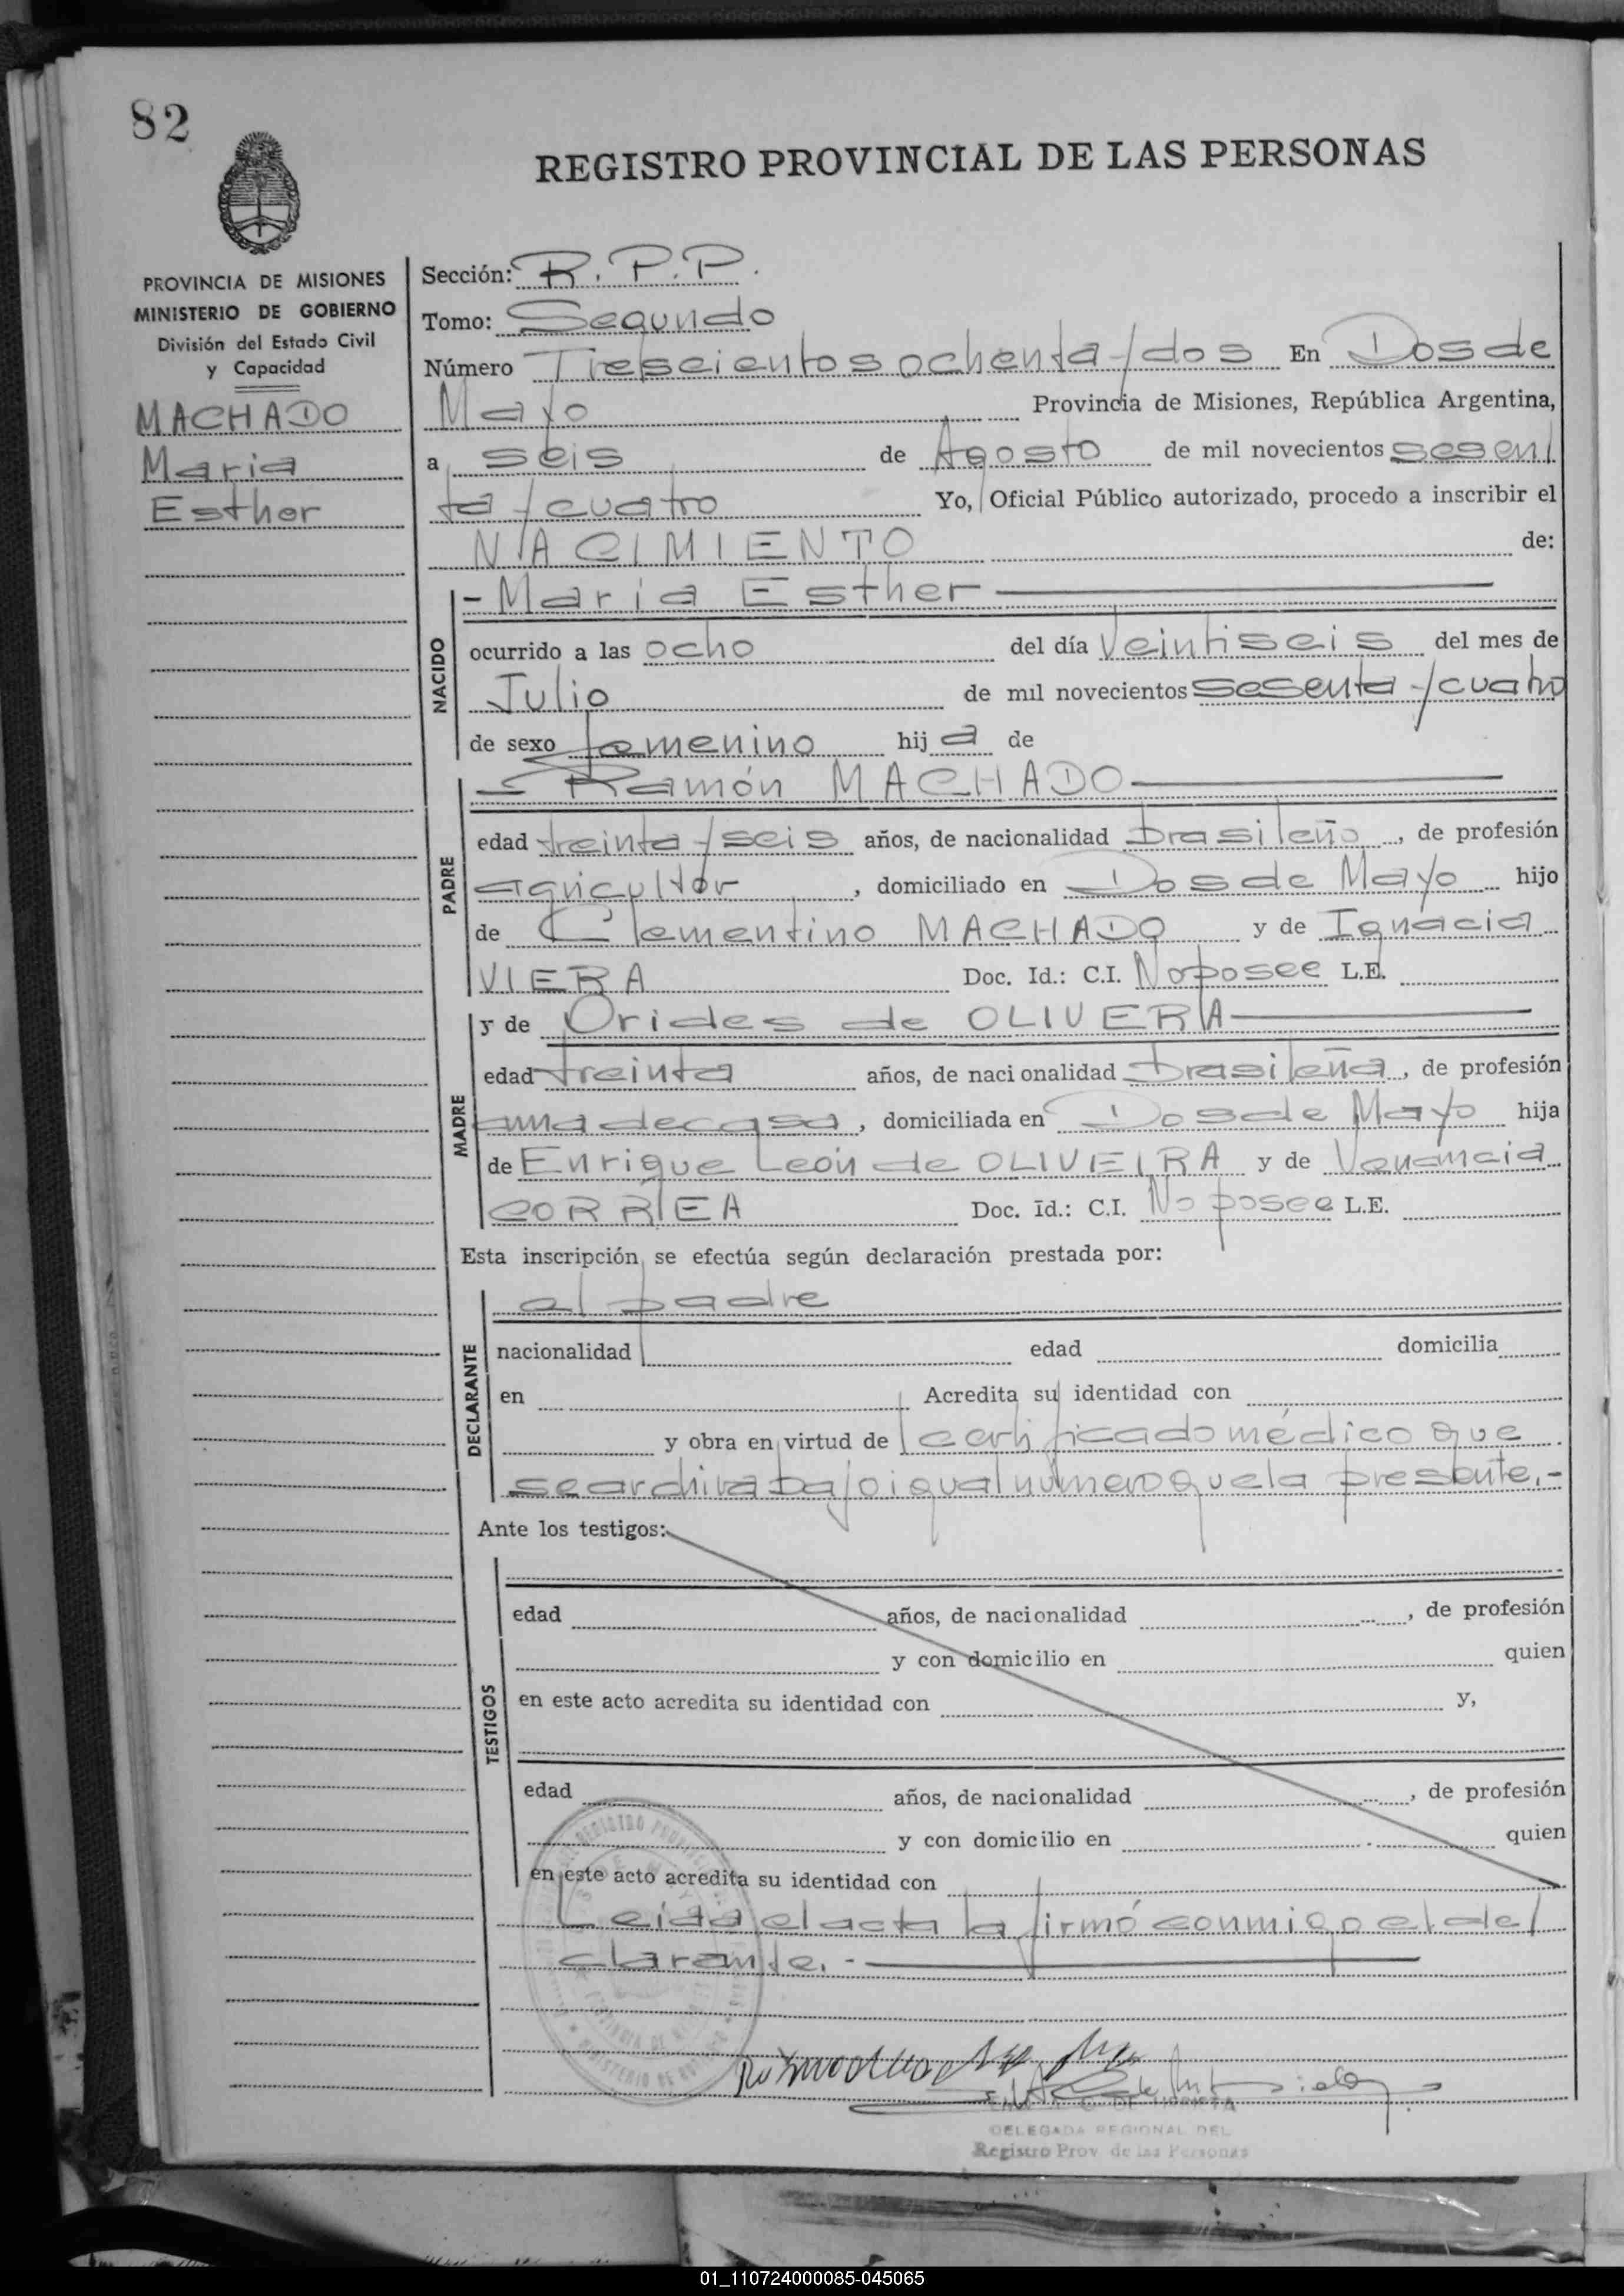 82
REGISTRO PROVINCIAL DE LAS PERSONAS
PROVINCIA DE MISIONES
MINISTERIO DE GOBIERNO
División del Estado Civil
y Capacidad
MACHADO
Maria
Esther
Sección: R. P. P.
Tomo: Segundo
Número Trescientos ochenta y dos En Dos de
Mayo Provincia de Misiones, República Argentina,
a seis de Agosto de mil novecientos sesen/
ta y cuatro Yo, Oficial Público autorizado, procedo a inscribir el
NACIMIENTO de:
NACIDO
- Maria Esther
ocurrido a las ocho del día veintiseis del mes de
Julio de mil novecientos sesenta y cuatro
de sexo femenino hija de
PADRE
- Ramón MACHADO
edad treinta y seis años, de nacionalidad brasileño, de profesión
agricultor, domiciliado en Dos de Mayo hijo
de Clementino MACHADO y de Ignacia
VIERA Doc. Id.: C.I. No posee L.E.
MADRE
y de Orides de OLIVERA
edad treinta años, de nacionalidad brasileña, de profesión
ama de casa, domiciliada en Dos de Mayo hija
de Enrique León de OLIVEIRA y de Venancia
CORRÊA Doc. Id.: C.I. No posee L.E.
Esta inscripción se efectúa según declaración prestada por:
DECLARANTE
el padre
nacionalidad edad domicilia
en Acredita su identidad con
y obra en virtud de certificado médico que
se archiva bajo igual número que la presente.-
Ante los testigos:
TESTIGOS
edad años, de nacionalidad , de profesión
y con domicilio en quien
en este acto acredita su identidad con y,
edad años, de nacionalidad , de profesión
y con domicilio en quien
en este acto acredita su identidad con
Leida el acta la firmó conmigo el de/
clarante.-
DELEGADA REGIONAL DEL
Registro Prov. de las Personas
01_110724000085-045065